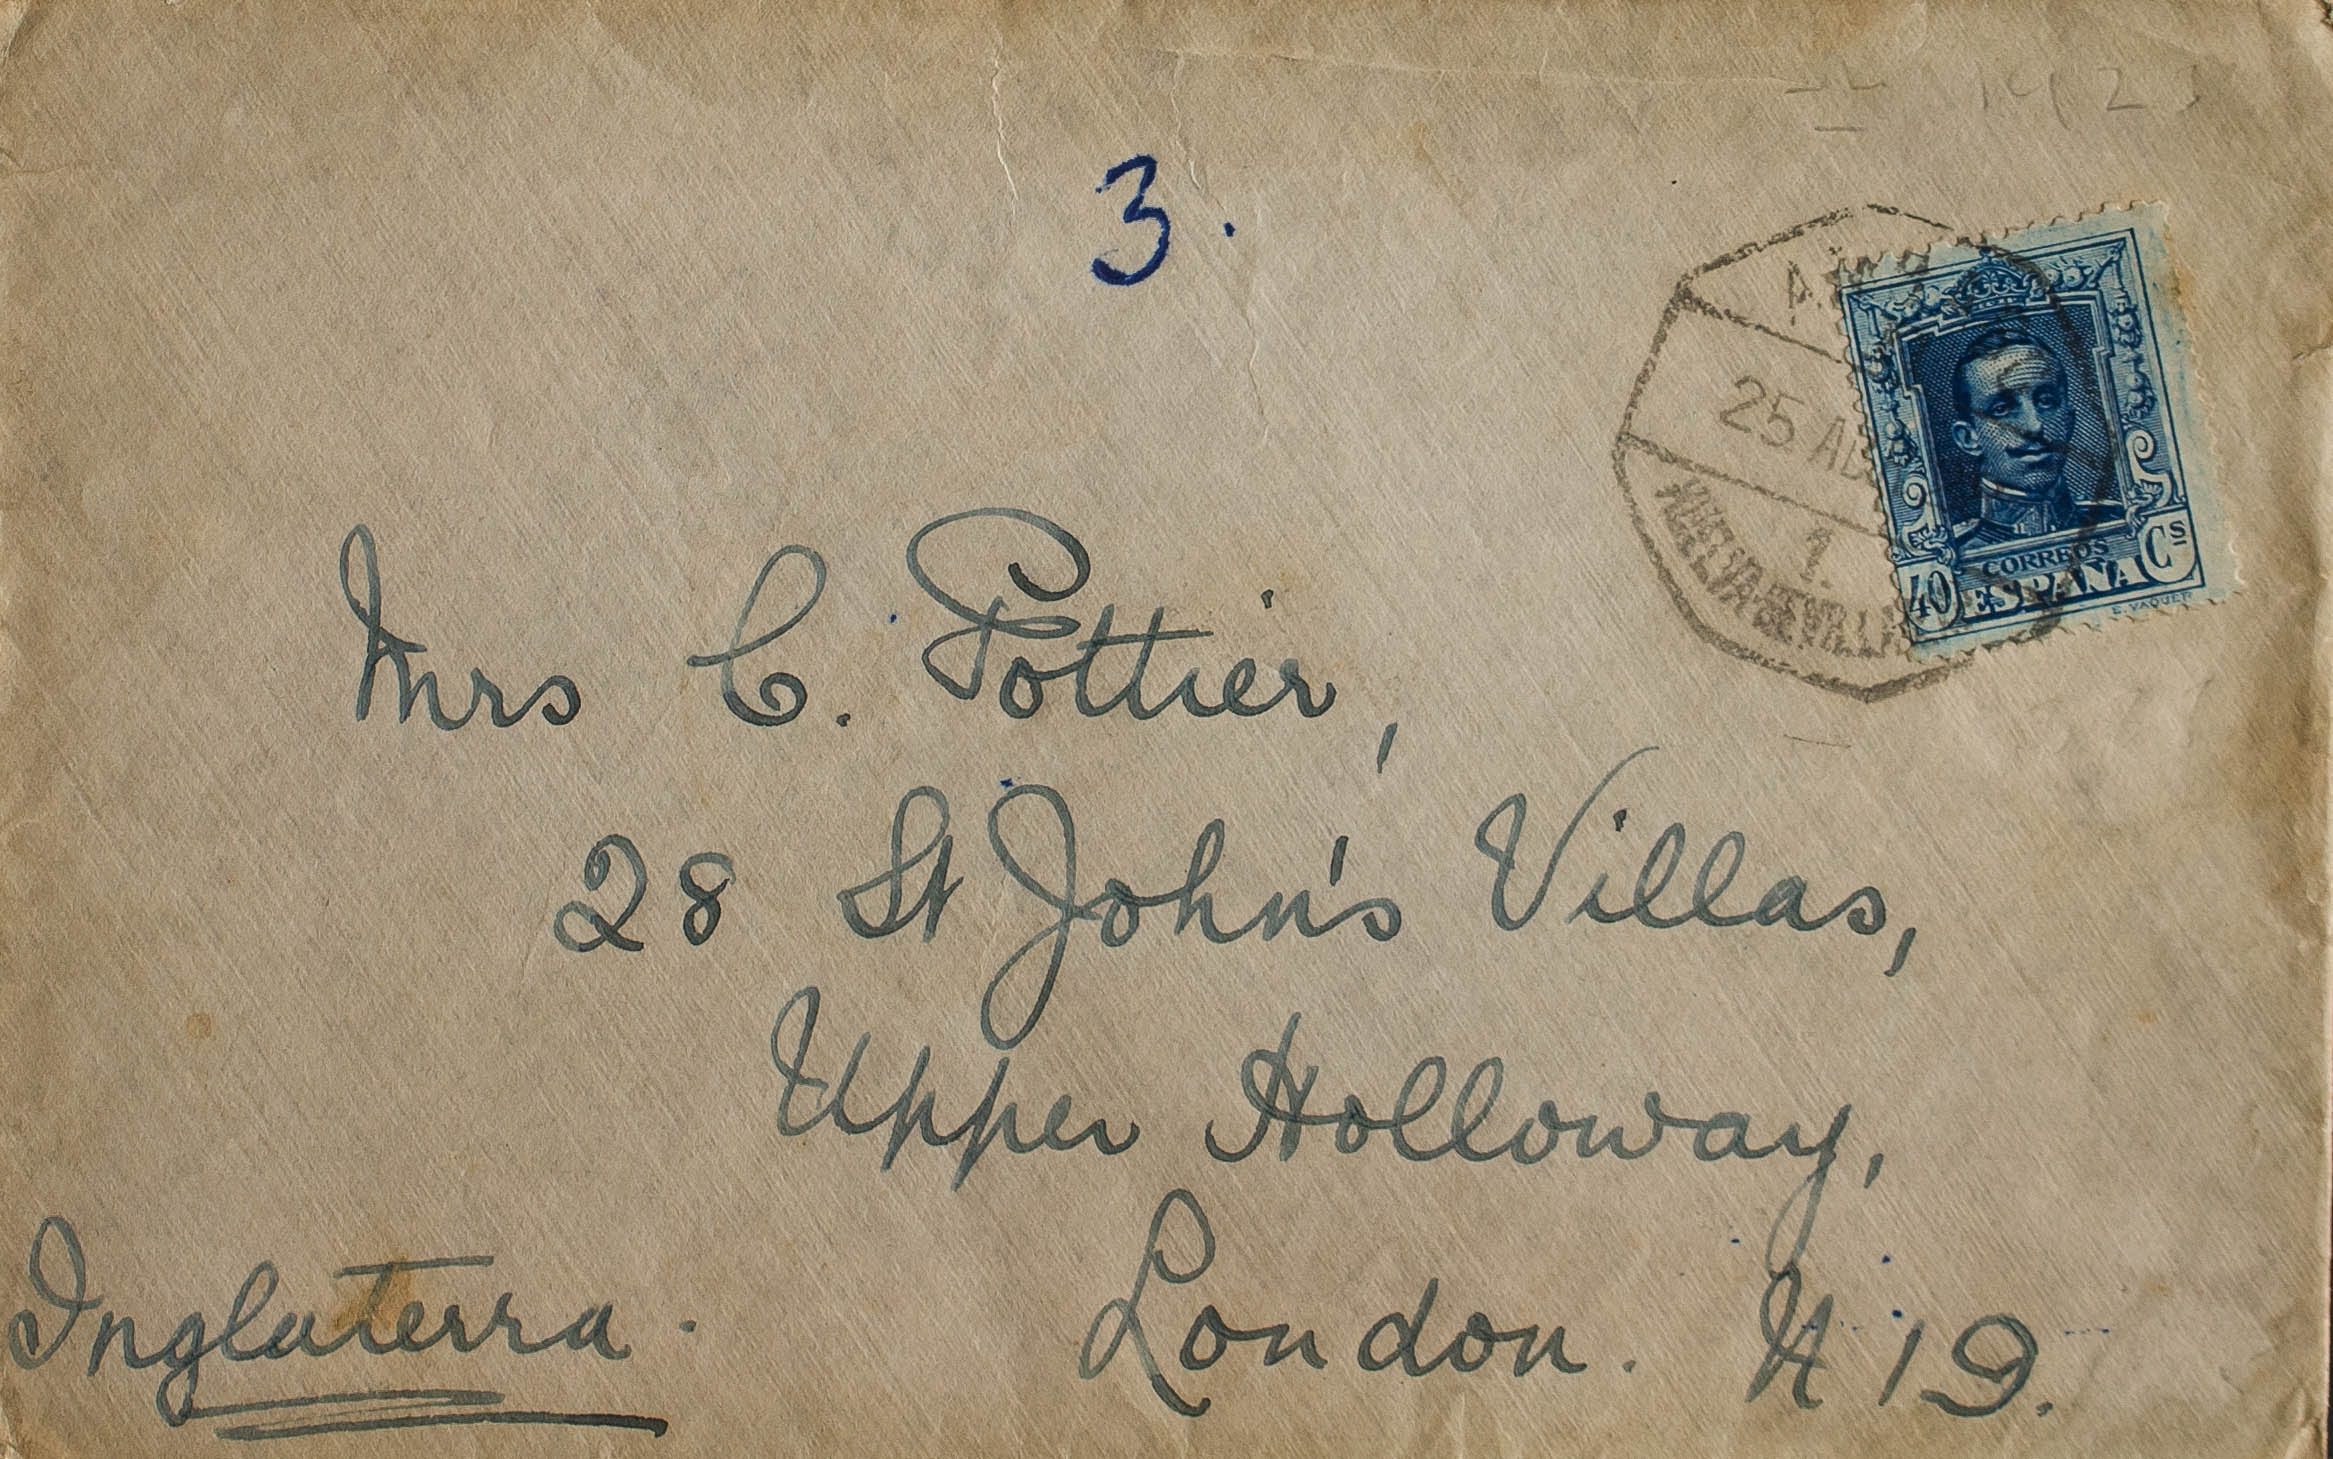 3.
25 AB
1.
HUELVA-SEVILLA
40 Cs
CORREOS
ESPAÑA
E. VAQUER
Mrs C. Pottier,
28 St John's Villas,
Upper Holloway,
London. N 19.
Inglaterra.